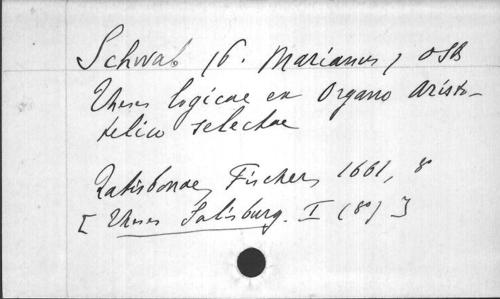 Schwab (P. Marianus) OSB
Theses logicae ex Organo Aristo-
telico selectae
Ratisbonae, Fischer, 1661, 8
[ Theses Salisburg. I (8°) ]